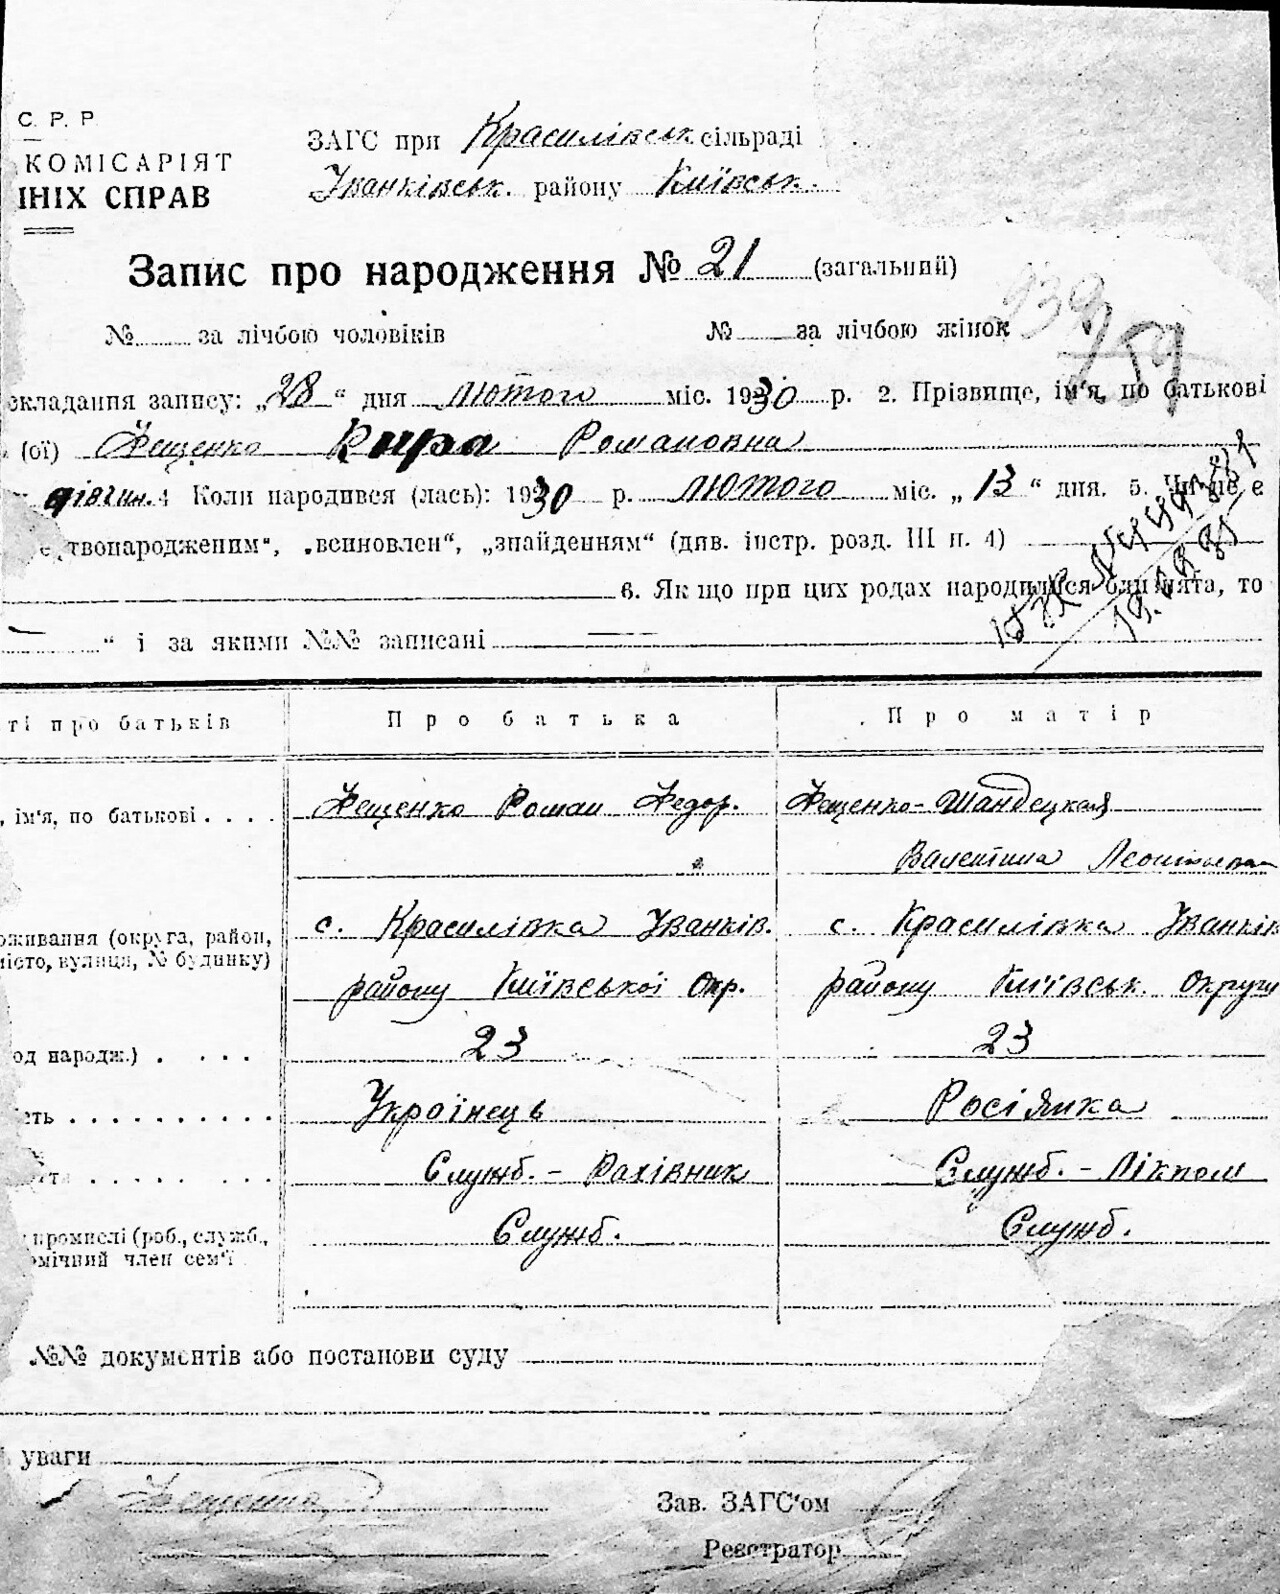 С. Р. Р.
КОМІСАРІЯТ
ІНІХ СПРАВ
ЗАГС при Красилівськ сільраді
Іванківськ. району Київськ.
Запис про народження № 21 (загальний)
№ за лічбою чоловіків № за лічбою жінок
складання запису: „28“ дня лютого міс. 1930 р. 2. Прізвище, ім'я, по батькові
(ої) Лещенко Кира Романовна
дівчин. 4 Коли народився (лась): 1930 р. лютого міс. „13“ дня. 5. Чи це є
ртвонародженим“, „всиновлен“, „знайденням“ (див. інстр. розд. III п. 4)
6. Якщо при цих родах народилися близнята, то
“ і за якими №№ записані
ті про батьків Про батька Про матір
, ім'я, по батькові . . . . Лещенко Роман Федор. Лещенко-Шандецкая
Валентина Леонтьевна
оживання (округа, район, с. Красилівка Іванків. с. Красилівка Іванків
місто, вулиця, № будинку) району Київської Окр. району Київськ. Округи
од народж.) . . . . 23 23
ість . . . . . . . . . . Українець Росіянка
Служб. - Рахівник Служб. - Лікпом
промислі (роб., служб., Служб. Служб.
омічний член сем'ї
№№ документів або постанови суду
уваги
Лещенко Зав. ЗАГС'ом
Реєстратор